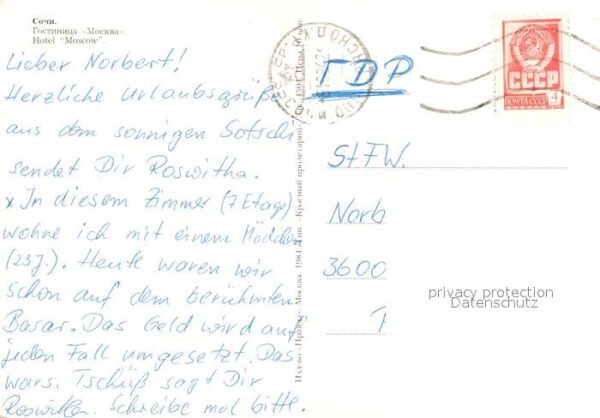 Сочи.
Гостиница «Москва».
Hotel "Moscow".
Lieber Norbert!
Herzliche Urlaubsgrüße
aus dem sonnigen Sotschi
sendet Dir Roswitha.
x In diesem Zimmer (7. Etage)
wohne ich mit einem Mädchen
(23 J.). Heute waren wir
schon auf dem berühmten
Basar. Das Geld wird auf
jeden Fall umgesetzt. Das
wars. Tschüß sagt Dir
Roswitha. Schreibe mal bitte.
Москва. 1984. Тип. «Красный пролетарий».
ГДР
СССР
ПОЧТА СССР 4
StFW.
Norb
3600
privacy protection
Datenschutz